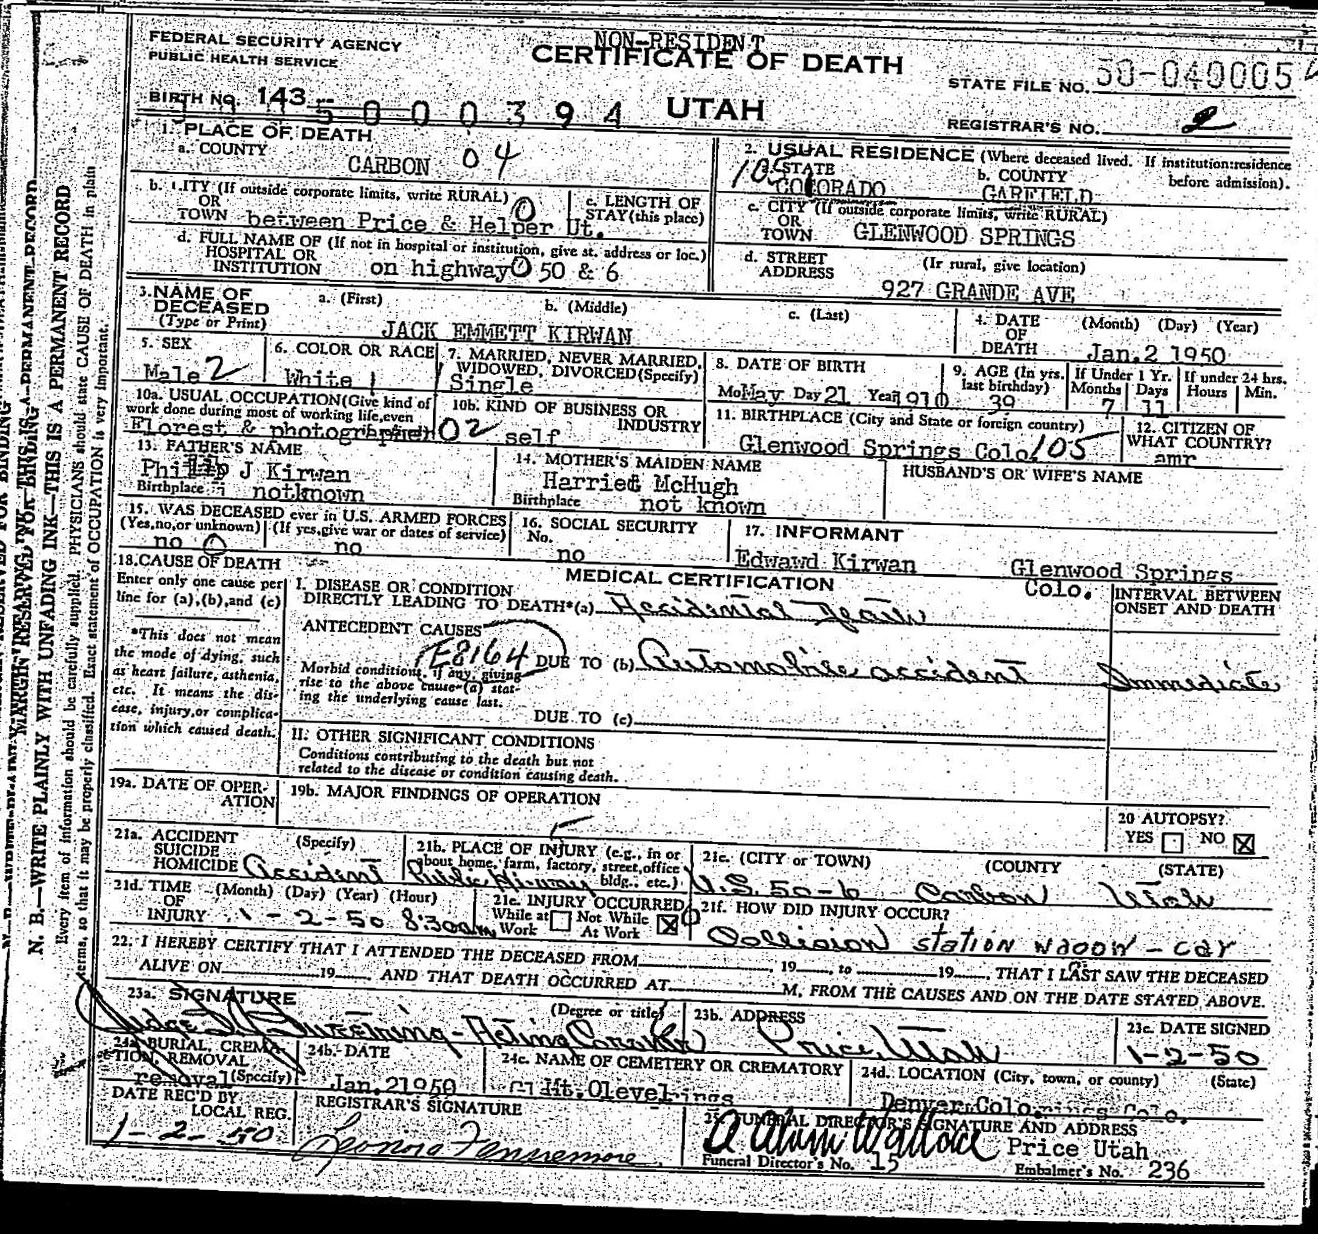 NON-RESIDENT
FEDERAL SECURITY AGENCY
PUBLIC HEALTH SERVICE
CERTIFICATE OF DEATH
STATE FILE NO. 50-040005
BIRTH NO. 143
500394
UTAH
REGISTRAR'S NO. 2
1. PLACE OF DEATH
a. COUNTY
CARBON 04
2. USUAL RESIDENCE (Where deceased lived. If institution: residence before admission).
105 STATE
COLORADO
b. COUNTY
GARFIELD
b. CITY (If outside corporate limits, write RURAL) 0
OR
TOWN between Price & Helper Ut.
c. LENGTH OF STAY (this place)
c. CITY (If outside corporate limits, write RURAL)
OR
TOWN GLENWOOD SPRINGS
d. FULL NAME OF (If not in hospital or institution, give st. address or loc.)
HOSPITAL OR
INSTITUTION on highway 0 50 & 6
d. STREET ADDRESS
(If rural, give location)
927 GRANDE AVE
3. NAME OF DECEASED
(Type or Print)
a. (First)
b. (Middle)
c. (Last)
JACK EMMETT KIRWAN
4. DATE OF DEATH
(Month) (Day) (Year)
Jan. 2 1950
5. SEX
Male 2
6. COLOR OR RACE
White 1
7. MARRIED, NEVER MARRIED, WIDOWED, DIVORCED (Specify)
Single
8. DATE OF BIRTH
Mo May Day 21 Year 1910
9. AGE (In yrs. last birthday)
39
If Under 1 Yr.
Months Days
7 11
If under 24 hrs.
Hours Min.
10a. USUAL OCCUPATION (Give kind of work done during most of working life, even
Florest & photographer 02
10b. KIND OF BUSINESS OR INDUSTRY
self
11. BIRTHPLACE (City and State or foreign country)
Glenwood Springs Colo. 105
12. CITIZEN OF WHAT COUNTRY?
amr
13. FATHER'S NAME
Phillip J Kirwan
Birthplace notknown
14. MOTHER'S MAIDEN NAME
Harriet McHugh
Birthplace not known
HUSBAND'S OR WIFE'S NAME
15. WAS DECEASED ever in U.S. ARMED FORCES
(Yes, no, or unknown)
(If yes, give war or dates of service)
no 0
no
16. SOCIAL SECURITY No.
no
17. INFORMANT
Edwawd Kirwan Glenwood Springs Colo.
18. CAUSE OF DEATH
Enter only one cause per line for (a), (b), and (c)
*This does not mean the mode of dying, such as heart failure, asthenia, etc. It means the disease, injury, or complication which caused death.
MEDICAL CERTIFICATION
INTERVAL BETWEEN ONSET AND DEATH
I. DISEASE OR CONDITION
DIRECTLY LEADING TO DEATH* (a) Accidental Death
ANTECEDENT CAUSES
E8164
Morbid conditions, if any, giving rise to the above cause (a) stating the underlying cause last.
DUE TO (b) Automobile accident Immediate
DUE TO (c)
II. OTHER SIGNIFICANT CONDITIONS
Conditions contributing to the death but not related to the disease or condition causing death.
19a. DATE OF OPERATION
19b. MAJOR FINDINGS OF OPERATION
20 AUTOPSY?
YES NO X
21a. ACCIDENT
SUICIDE
HOMICIDE
(Specify)
Accident
21b. PLACE OF INJURY (e.g., in or about home, farm, factory, street, office bldg., etc.)
Public Hiway
21c. (CITY or TOWN) (COUNTY) (STATE)
U.S. 50-6 Carbon Utah
21d. TIME OF INJURY
(Month) (Day) (Year) (Hour)
1-2-50 8:30am
21e. INJURY OCCURRED
While at Work
Not While At Work X
21f. HOW DID INJURY OCCUR?
Collision station wagon - car
22. I HEREBY CERTIFY THAT I ATTENDED THE DECEASED FROM , 19 , to 19 , THAT I LAST SAW THE DECEASED
ALIVE ON 19 AND THAT DEATH OCCURRED AT M, FROM THE CAUSES AND ON THE DATE STATED ABOVE.
23a. SIGNATURE
(Degree or title)
Judge - Acting Coroner
23b. ADDRESS
Price, Utah
23c. DATE SIGNED
1-2-50
24a. BURIAL, CREMATION, REMOVAL
(Specify)
removal
24b. DATE
Jan. 2 1950
24c. NAME OF CEMETERY OR CREMATORY
Mt. Olevel
24d. LOCATION (City, town, or county) (State)
Denver Colo.
DATE REC'D BY LOCAL REG.
1-2-50
REGISTRAR'S SIGNATURE
Leonora Fennemore
25. FUNERAL DIRECTOR'S SIGNATURE AND ADDRESS
Wallace Price Utah
Funeral Director's No. 15
Embalmer's No. 236
MARGIN RESERVED FOR BINDING
N. B.—WRITE PLAINLY WITH UNFADING INK—THIS IS A PERMANENT RECORD
Every item of information should be carefully supplied. PHYSICIANS should state CAUSE OF DEATH in plain
terms, so that it may be properly classified. Exact statement of OCCUPATION is very important.